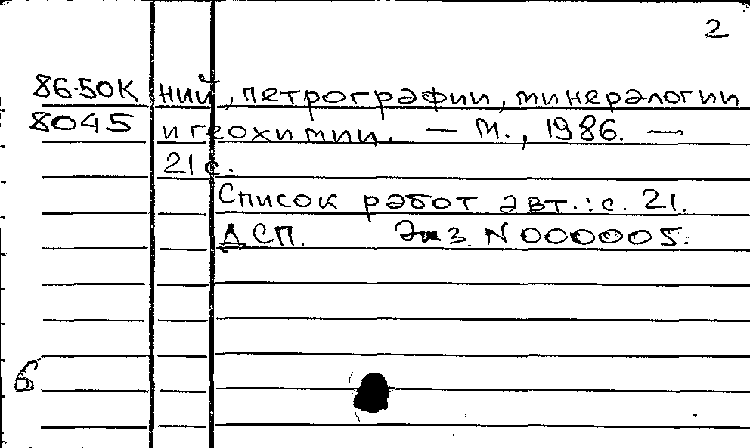 2
86-50К ний, петрографии, минералогии
8045 и геохимии. — М., 1986. —
21 с.
Список работ авт.: с. 21.
ДСП. Экз. N 000005.
б